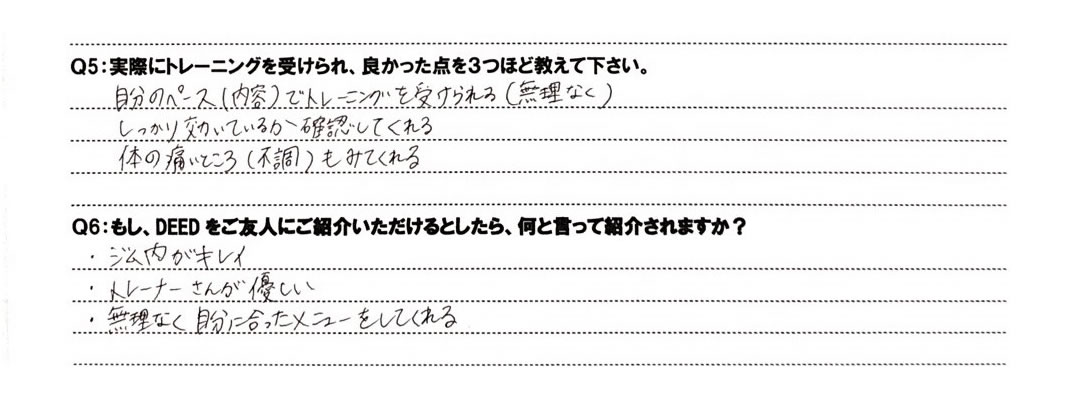 Q5：実際にトレーニングを受けられ、良かった点を3つほど教えて下さい。
自分のペース(内容)でトレーニングを受けられる(無理なく)
しっかり効いているか確認してくれる
体の痛いところ(不調)もみてくれる
Q6：もし、DEEDをご友人にご紹介いただけるとしたら、何と言って紹介されますか？
・ジム内がキレイ
・トレーナーさんが優しい
・無理なく自分に合ったメニューをしてくれる